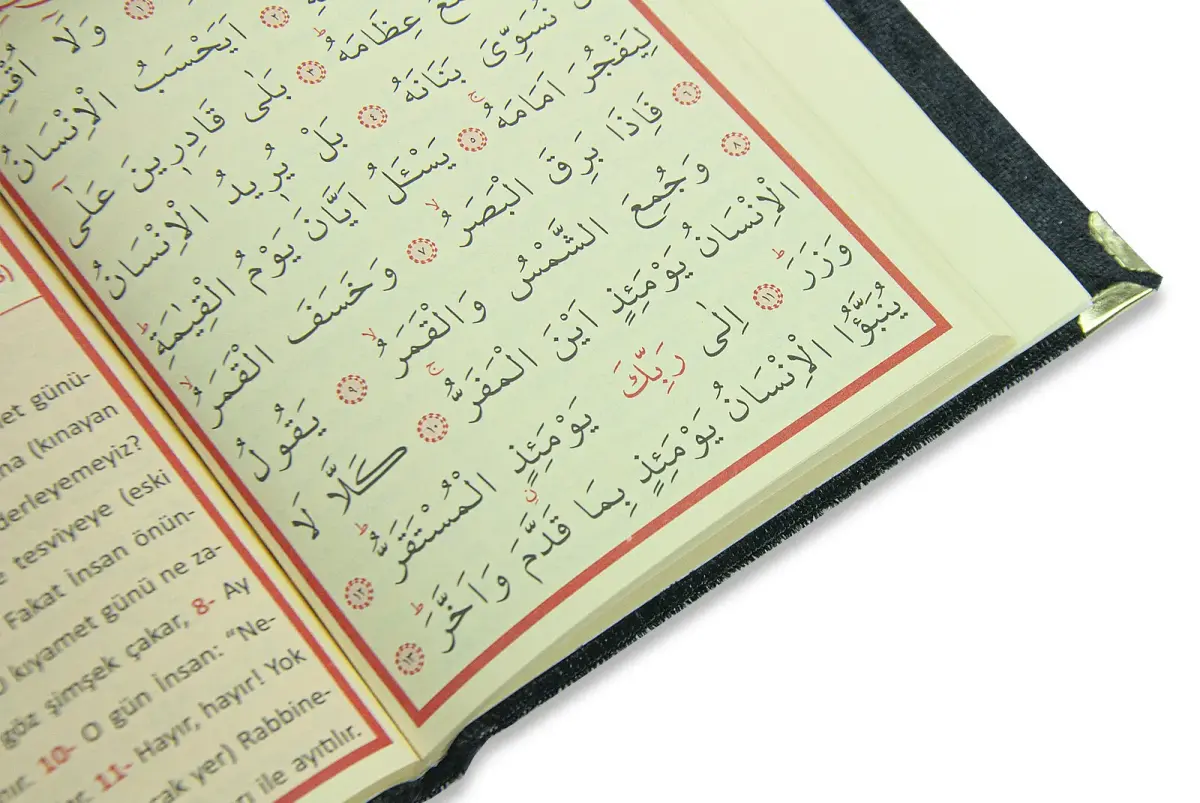 ١ وَلَا
٢ اَيَحْسَبُ الْاِنْسَانُ
عِظَامَهُ ٣ بَلٰى قَادِرِينَ عَلٰٓى
نُسَوِّىَ بَنَانَهُ ٤ بَلْ يُرِيدُ الْاِنْسَانُ
لِيَفْجُرَ اَمَامَهُ ٥ يَسْـَٔلُ اَيَّانَ يَوْمُ الْقِيٰمَةِ
٦ فَاِذَا بَرِقَ الْبَصَرُ ٧ وَخَسَفَ الْقَمَرُ
٨ وَجُمِعَ الشَّمْسُ وَالْقَمَرُ ٩ يَقُولُ
الْاِنْسَانُ يَوْمَئِذٍ اَيْنَ الْمَفَرُّ ١٠ كَلَّا لَا
وَزَرَ ١١ اِلٰى رَبِّكَ يَوْمَئِذٍ الْمُسْتَقَرُّ ١٢
يُنَبَّؤُا الْاِنْسَانُ يَوْمَئِذٍ بِمَا قَدَّمَ وَاَخَّرَ ١٣
günü-
(kınayan
derleyemeyiz?
tesviyeye (eski
Fakat İnsan önün-
kıyamet günü ne za-
göz şimşek çakar, 8- Ay
10- O gün İnsan: “Ne-
11- Hayır, hayır! Yok
yer) Rabbine-
ile ayıtılır.